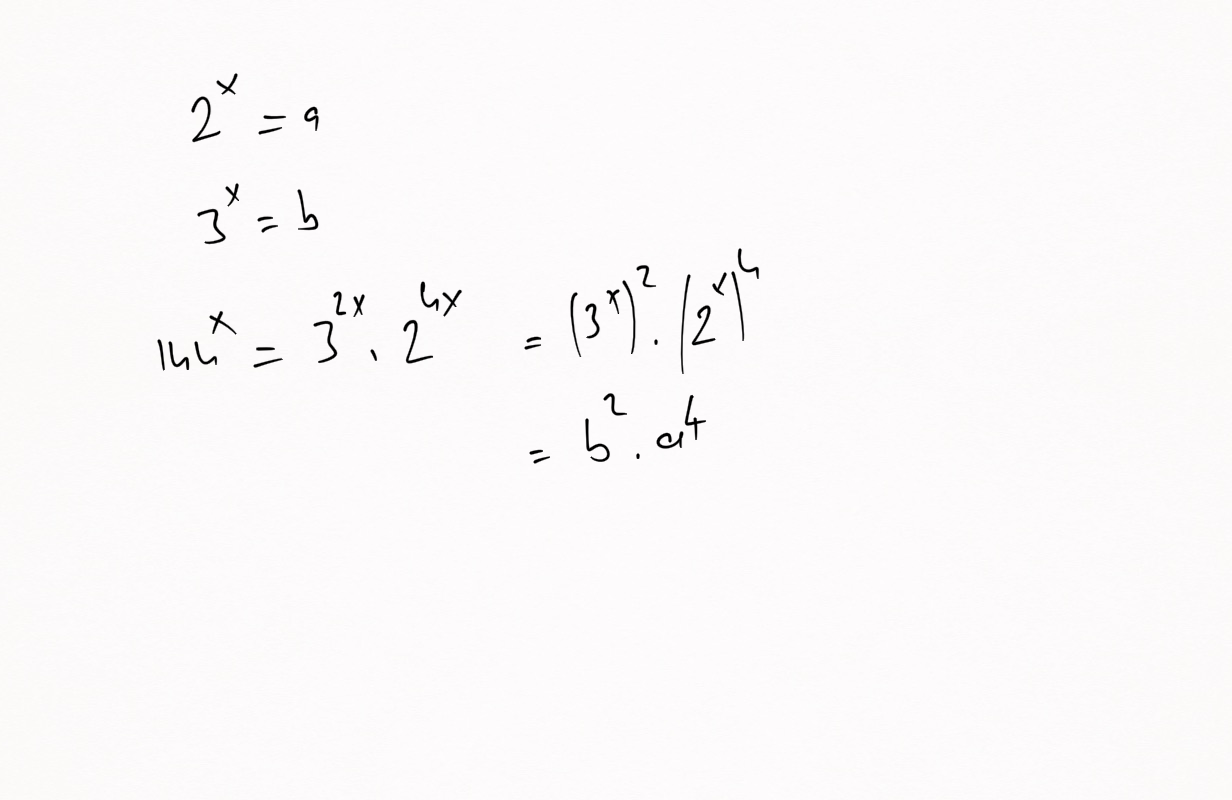 2^x = a
3^x = b
144^x = 3^{2x} . 2^{4x} = (3^x)^2 . (2^x)^4
= b^2 . a^4